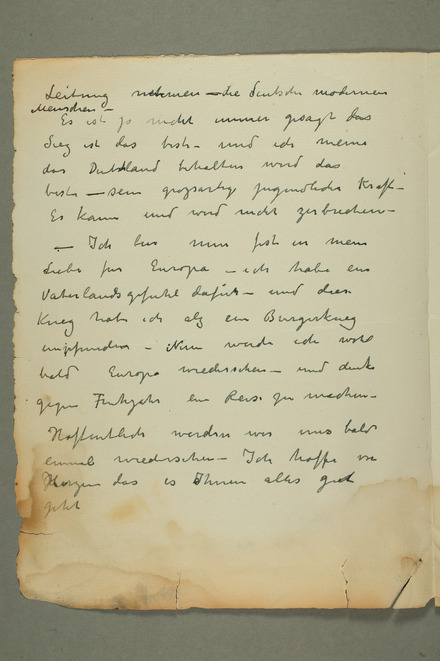 Leitung nehmen – die deutsche modernen
Menschen –
Es ist ja nicht immer gesagt das
Sieg ist das beste – und ich meine
das Deutschland behalten wird das
beste – sein grossartig jugendliche Kraft –
Es kann und wird nicht zerbrechen –
– Ich bin nun fest in mein
Liebe fur Europa – ich habe ein
Vaterlandsgefuhl dafür – und diese
Krieg habe ich als ein Burgerkrieg
empfunden – Nun werde ich wohl
bald Europa wiedersehen – und denke
gegen Fruhjahr ein Reise zu machen –
Hoffentlich werden wir uns bald
einmal wiedersehen – Ich hoffe von
Herzen das es Ihnen alles gut
geht